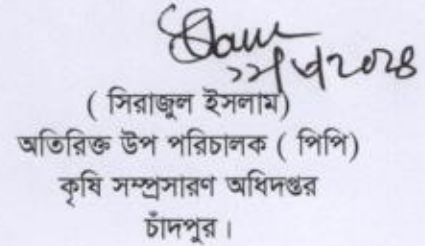 ( সিরাজুল ইসলাম)
অতিরিক্ত উপ পরিচালক ( পিপি)
কৃষি সম্প্রসারণ অধিদপ্তর
চাঁদপুর।